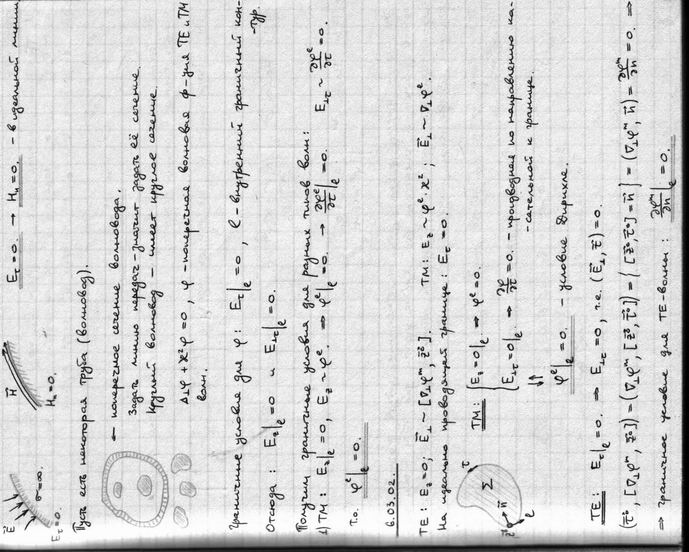 E_τ = 0. → H_n = 0. - в идеальной линии
E⃗
σ=∞.
E_τ = 0.
H⃗
H_n = 0.
Пусть есть некоторая труба (волновод).
← поперечное сечение волновода.
Задать линию передач - значит задать её сечение.
Круглый волновод - имеет круглое сечение.
Δ_⊥φ + ϰ²φ = 0, φ - поперечная волновая ф-ция TE и TM
волн.
Граничные условия для φ: E_τ|_ℓ = 0, ℓ - внутренний граничный кон-
-тур.
Отсюда: E_z|_ℓ = 0 и E_⊥τ|_ℓ = 0.
Получим граничные условия для разных типов волн:
1) TM: E_z|_ℓ = 0, E_z ~ φ^e. ⇒ φ^e|_ℓ = 0. → ∂φ^e/∂τ|_ℓ = 0. E_⊥τ ~ ∂φ^e/∂τ = 0.
т.о. φ^e|_ℓ = 0.
6.03.02.
TE: E_z = 0; E⃗_⊥ ~ [∇_⊥φ^m, z⃗⁰]. TM: E_z ~ φ^e ϰ²; E⃗_⊥ ~ ∇_⊥φ^e.
На идеально проводящей границе: E_τ = 0.
Σ
τ
n⃗
z⃗⁰
ℓ
TM: { E_z = 0|_ℓ ⇒ φ^e = 0.
E_⊥τ = 0|_ℓ ⇒ ∂φ/∂τ = 0. - производная по направлению ка-
-сательной к границе.
φ^e|_ℓ = 0. - условие Дирихле.
TE: E_τ|_ℓ = 0. ⇒ E_⊥τ = 0, т.е. (E⃗_⊥, τ⃗) = 0.
(τ⃗⁰, [∇_⊥φ^m, z⃗⁰]) = (∇_⊥φ^m, [z⃗⁰, τ⃗⁰]) = { [z⃗⁰, τ⃗⁰] = n⃗ } = (∇_⊥φ^m, n⃗) = ∂φ^m/∂n = 0. ⇒
⇒ граничное условие для TE-волны: ∂φ^m/∂n|_ℓ = 0.